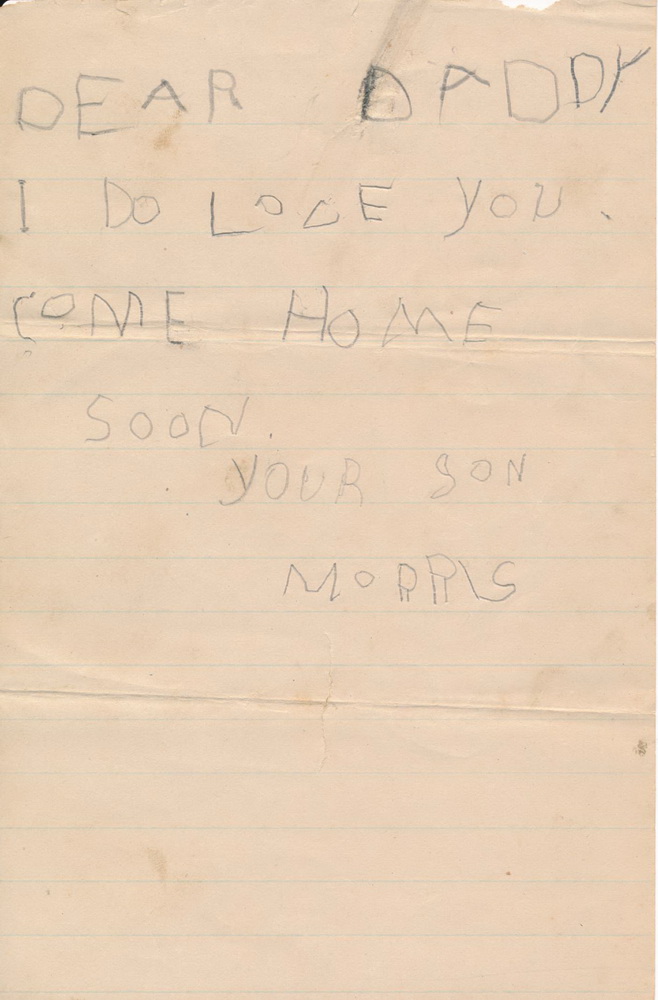 DEAR DADDY
I DO LOVE YOU.
COME HOME
SOON.
YOUR SON
MORRIS